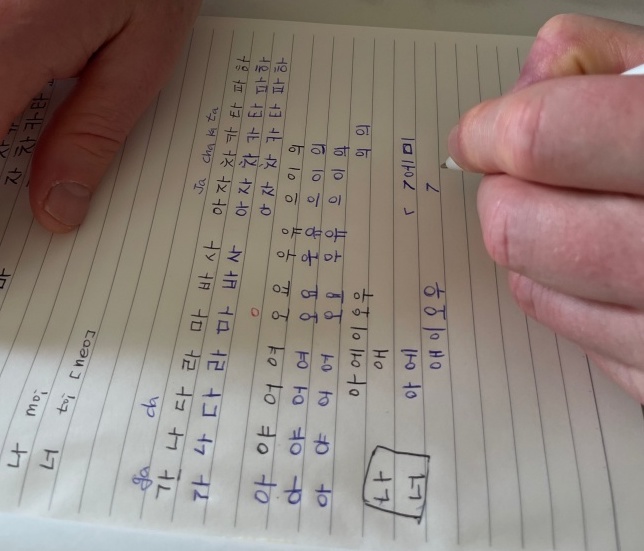 자 차 카 타
나 moi
너 toi [neo]
ga cha Ja cha ka ta
가 나 다 라 마 바 사 아 자 차 카 타 파 하
가 나 다 라 마 바 사 아 자 차 카 타 파 하
아 자 차 카 타 파 하
아 야 어 여 오 요 우 유 으 이 의
아 야 어 여 오 요 우 유 으 이 의
아 야 어 여 오 요 우 유 으 이 의
아 에 이 오 우 의 의
나 애
너 아 에
애 이 오 우